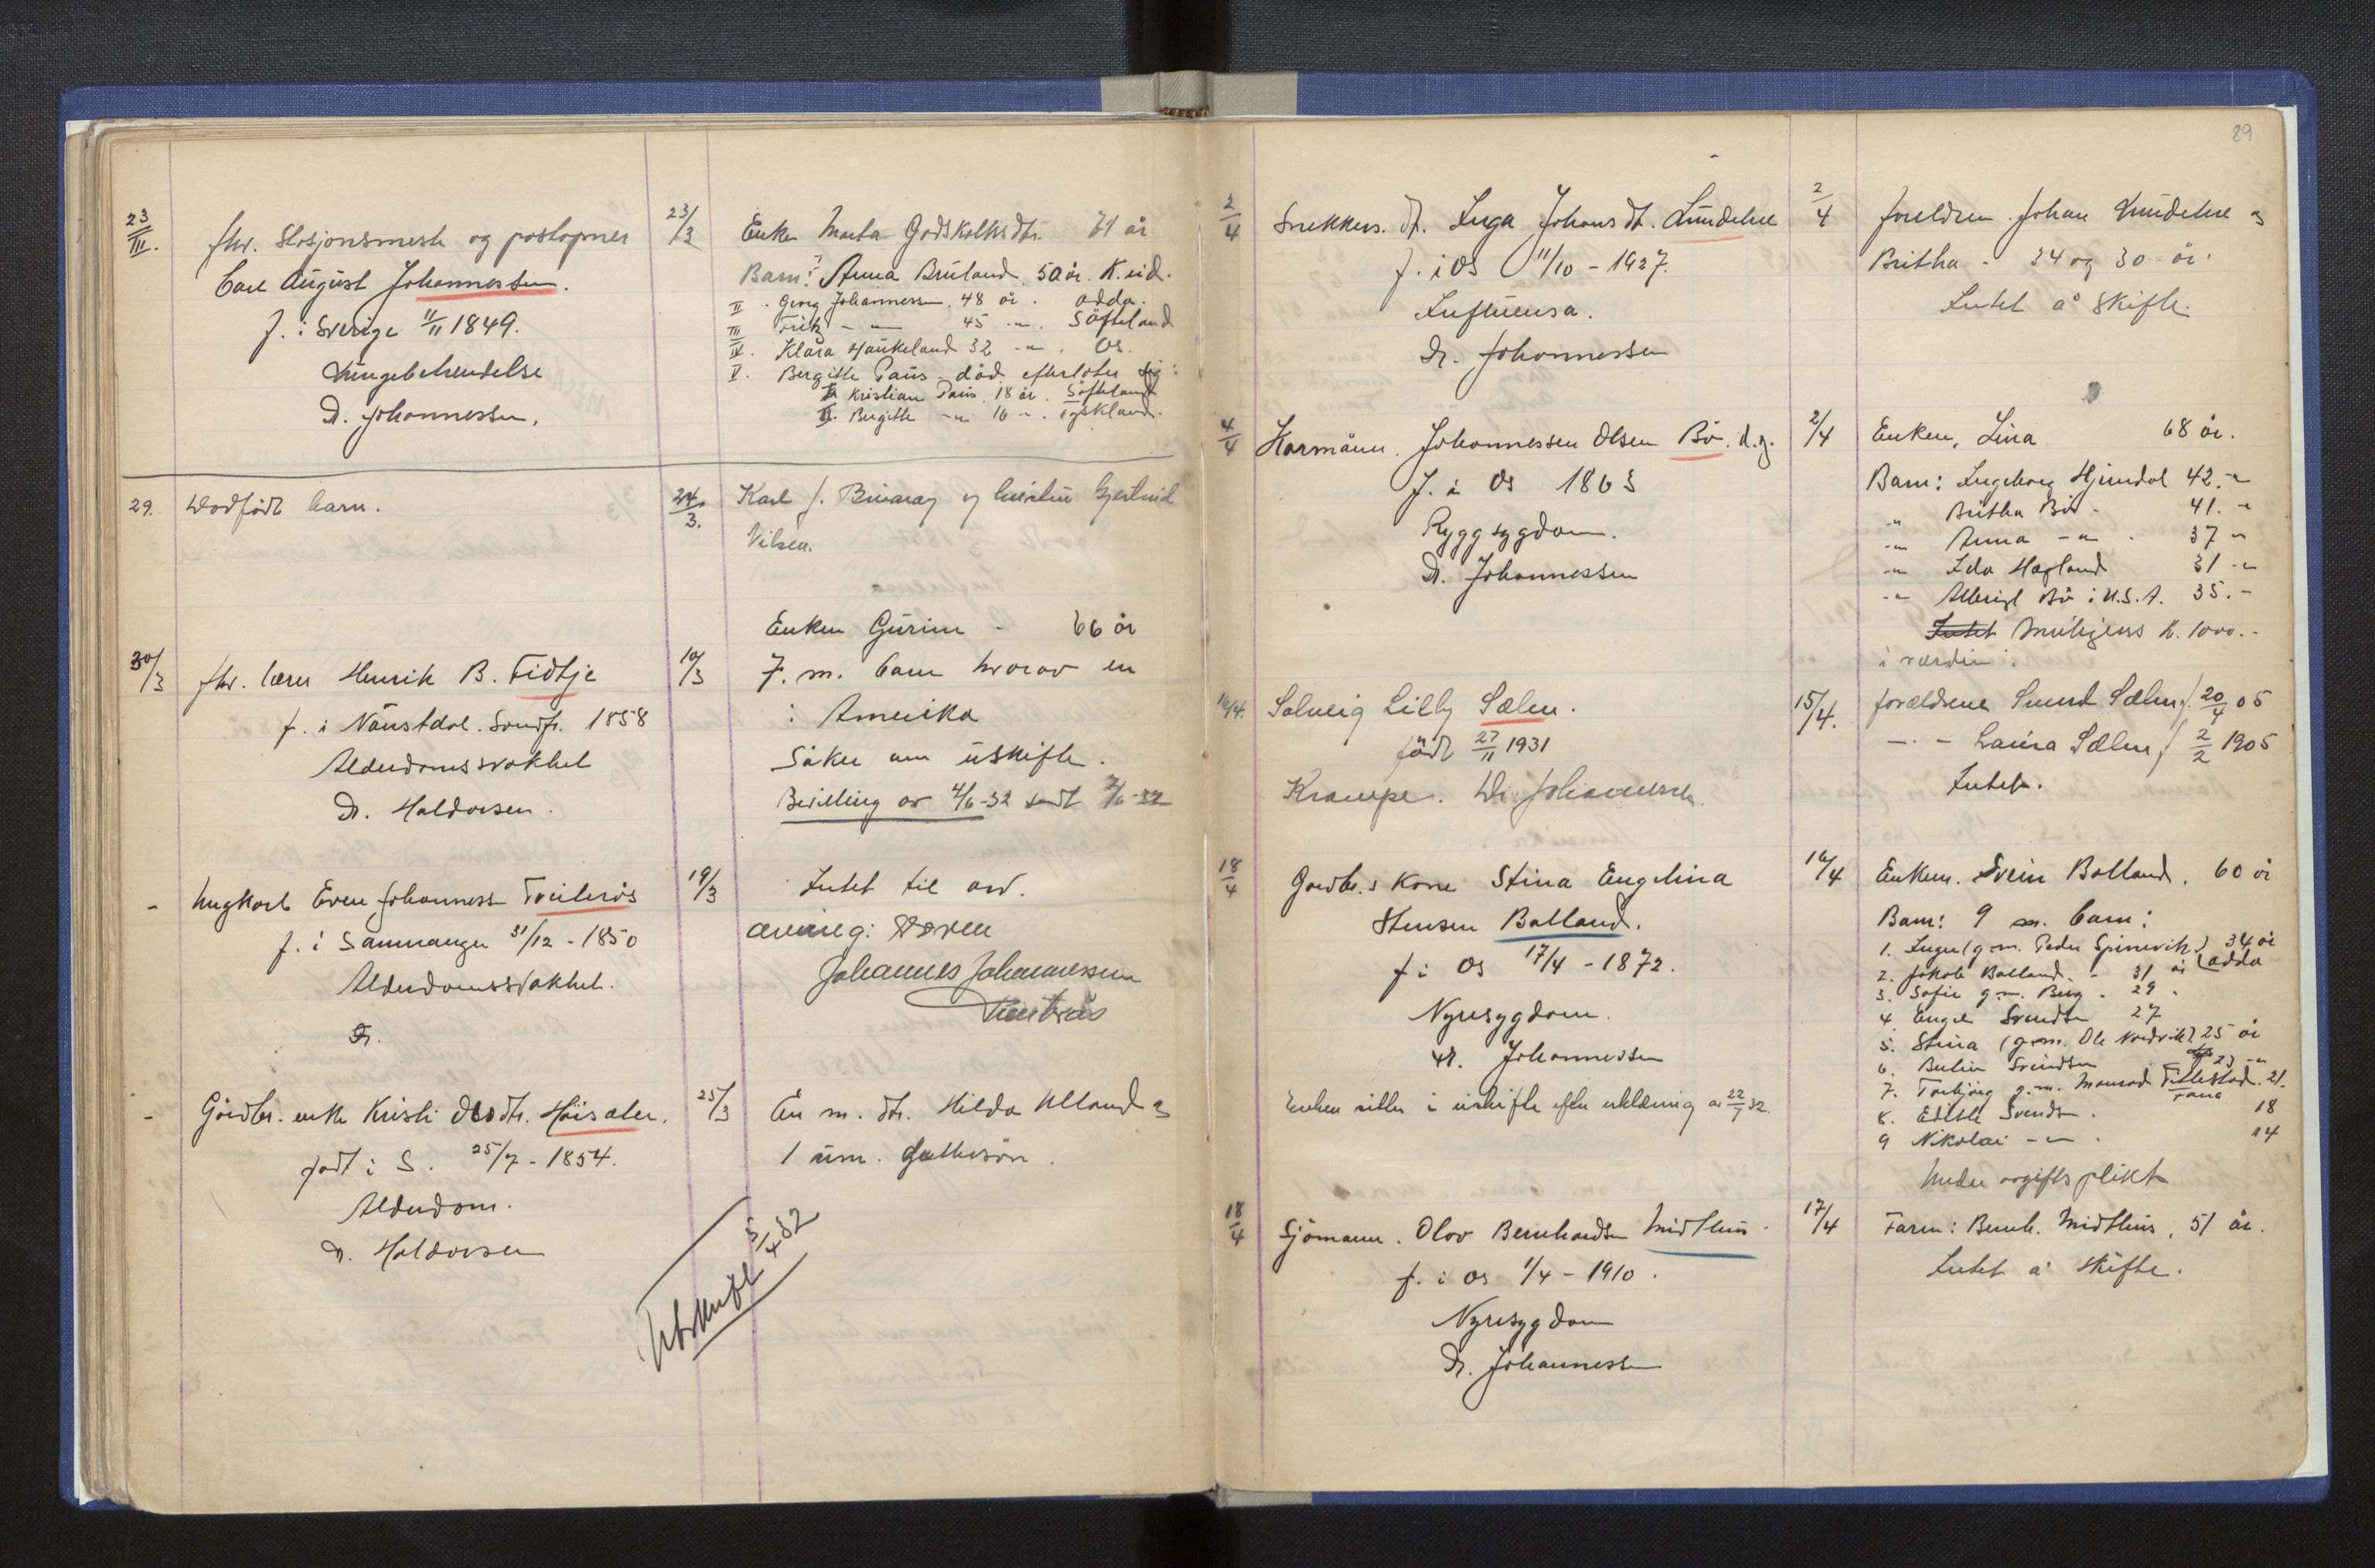 23/III.
fhv. Stasjonsmester og postopner
Carl August Johannessen.
f. i Sverige 11/11 1849.
Lungebetendelse
D. Johannessen.
23/3
Enke Marta Godskalksdtr. 71 år
Barn: I Anna Bruland. 50 år. K.eid.
II. Georg Johannessen. 48 år. Odda.
III Frik - " - 45 - " . Søfteland
IV. Klara Haukeland 32 - " . Os.
V. Bergitte Paus - død efterlater sig:
I. Kristian Paus. 18 år. Søfteland
II. Bergitte - " 16 - " . Tyskland.
29. Dødfødt barn.
24/3.
Karl J. og Gjertrud
Nilsen.
30/3
fhv. lærer Henrik B. Tidtje
f. i Naustdal. Søndfj. 1858
Alderdomssvakhet
D. Haldorsen.
10/3
Enken Gurine - 66 år
7. m. barn hvorav en
i Amerika
Søker om uskifte.
Bevilling av 4/6-32 sendt 7/6-32
-
Ungkarl Even Johannessen Tveiterås
f. i Samnanger 31/12 - 1850
Alderdomssvakhet.
D.
19/3
Intet til arv.
arving:
Johannes Johannessen
Tveiterås
-
Gårdbr. enke Kristi Olsdtr. Høisæter.
født i S. 25/7 - 1854.
Alderdom.
D. Haldorsen
25/3
En m. dtr. Hilda Ulland og
1 um. dattersøn.
Utskrift 5/4 32
89
2/4
Snekkers. dt. Inga Johans dt. Lundetræ
f. i Os 11/10 - 1927.
Influensa.
Dr. Johannessen
2/4
foreldren Johan Lundetræ og
Britha - 34 og 30 år.
Intet å skifte.
4/4
Kårmann. Johannessen Olsen Bø. d.y.
f. i Os 1863
Ryggsygdom.
D. Johannessen
2/4
Enken, Lina 68 år.
Barn: Ingeborg Hjemdal 42. - "
- " Britha Bø - 41. - "
- " Anna - " . 37 - "
- " Ida Hagland 31 - "
- " Albrigt Bø i U.S.A. 35. -
Intet Muligens K. 1000. -
i værdien.
16/4.
Solveig Lilly Sælen.
født 27/11 1931
Krampe. Dr. Johannessen.
15/4.
forældrene Svend Sælen f. 20/4 05
- . - Laura Sælen f 2/2 1905
Intet.
18/4
Gardbr.s Kone Stina Engelina
Stensen Balland.
f i Os 17/4 - 1872.
Nyresygdom.
Dr. Johannessen
Enken sitter i uskifte efter erklæring av 22/7 32.
16/4
Enkem. Svein Balland. 60 år
Barn: 9 m. barn:
1. Inger (g.m. Peder Spinnevik) 34 år
2. Jakob Balland. - 31 år (Odda
3. Sofie g.m. Berg. 29 .
4 Engel Svendsen 27
5. Stina (g.m. Ole Nordvik) 25 år
6. Berlin Svendsen 23 - "
7. Torbjørg g.m. Monrad Tittlestad. 21.
Fana
8. Edith Svendsen. 18
9 Nikolai - " - . 14
Under avgiftsplikt
18/4
Sjømann. Olav Bernhardsen Midthus.
f. i Os 1/4 - 1910.
Nyresygdom
Dr. Johannessen
17/4
Faren: Bernh. Midthus, 51 år.
Intet å skifte.